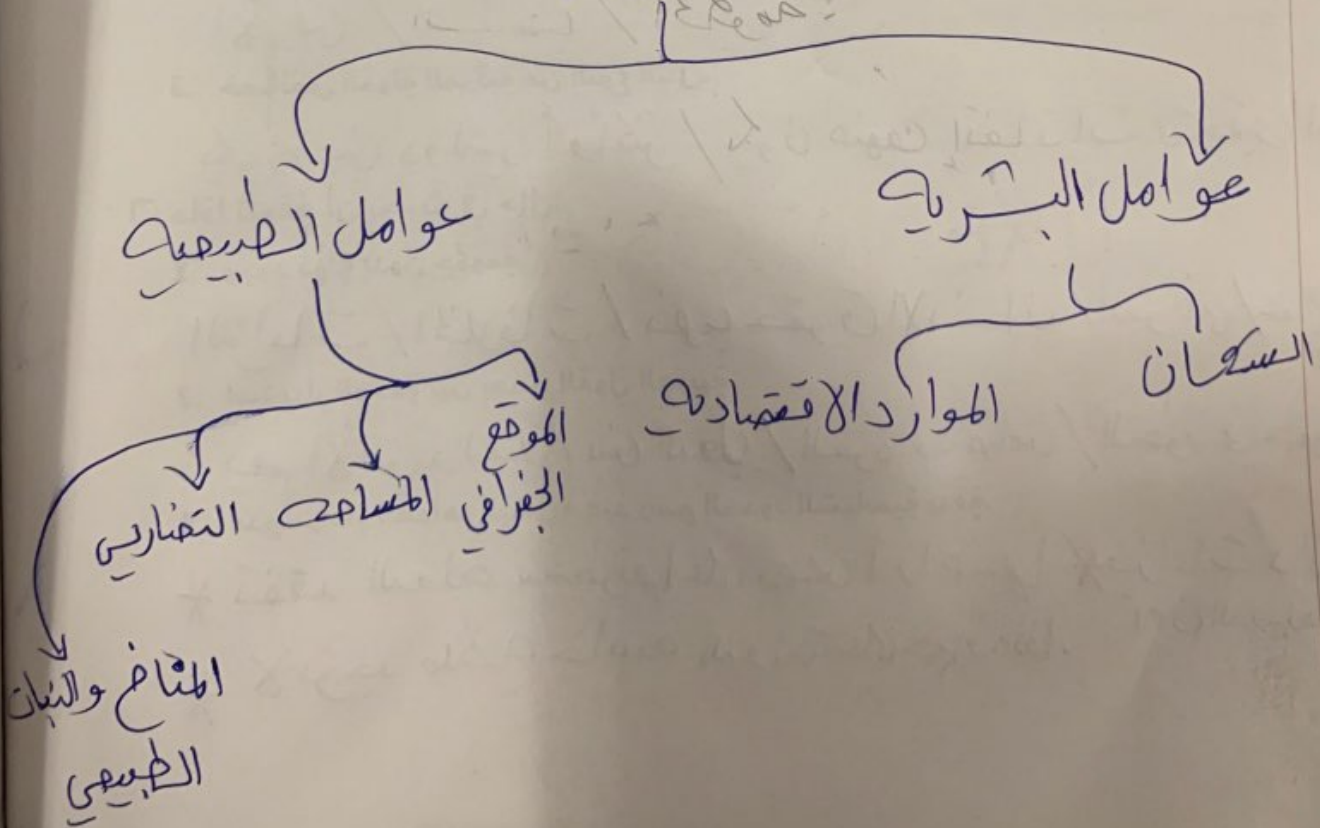 عوامل البشريه
عوامل الطبيعيه
السكان
الموارد الاقتصاديه
الموقع
الجغرافي
المساحه
التضاريس
المناخ والنبات
الطبيعي